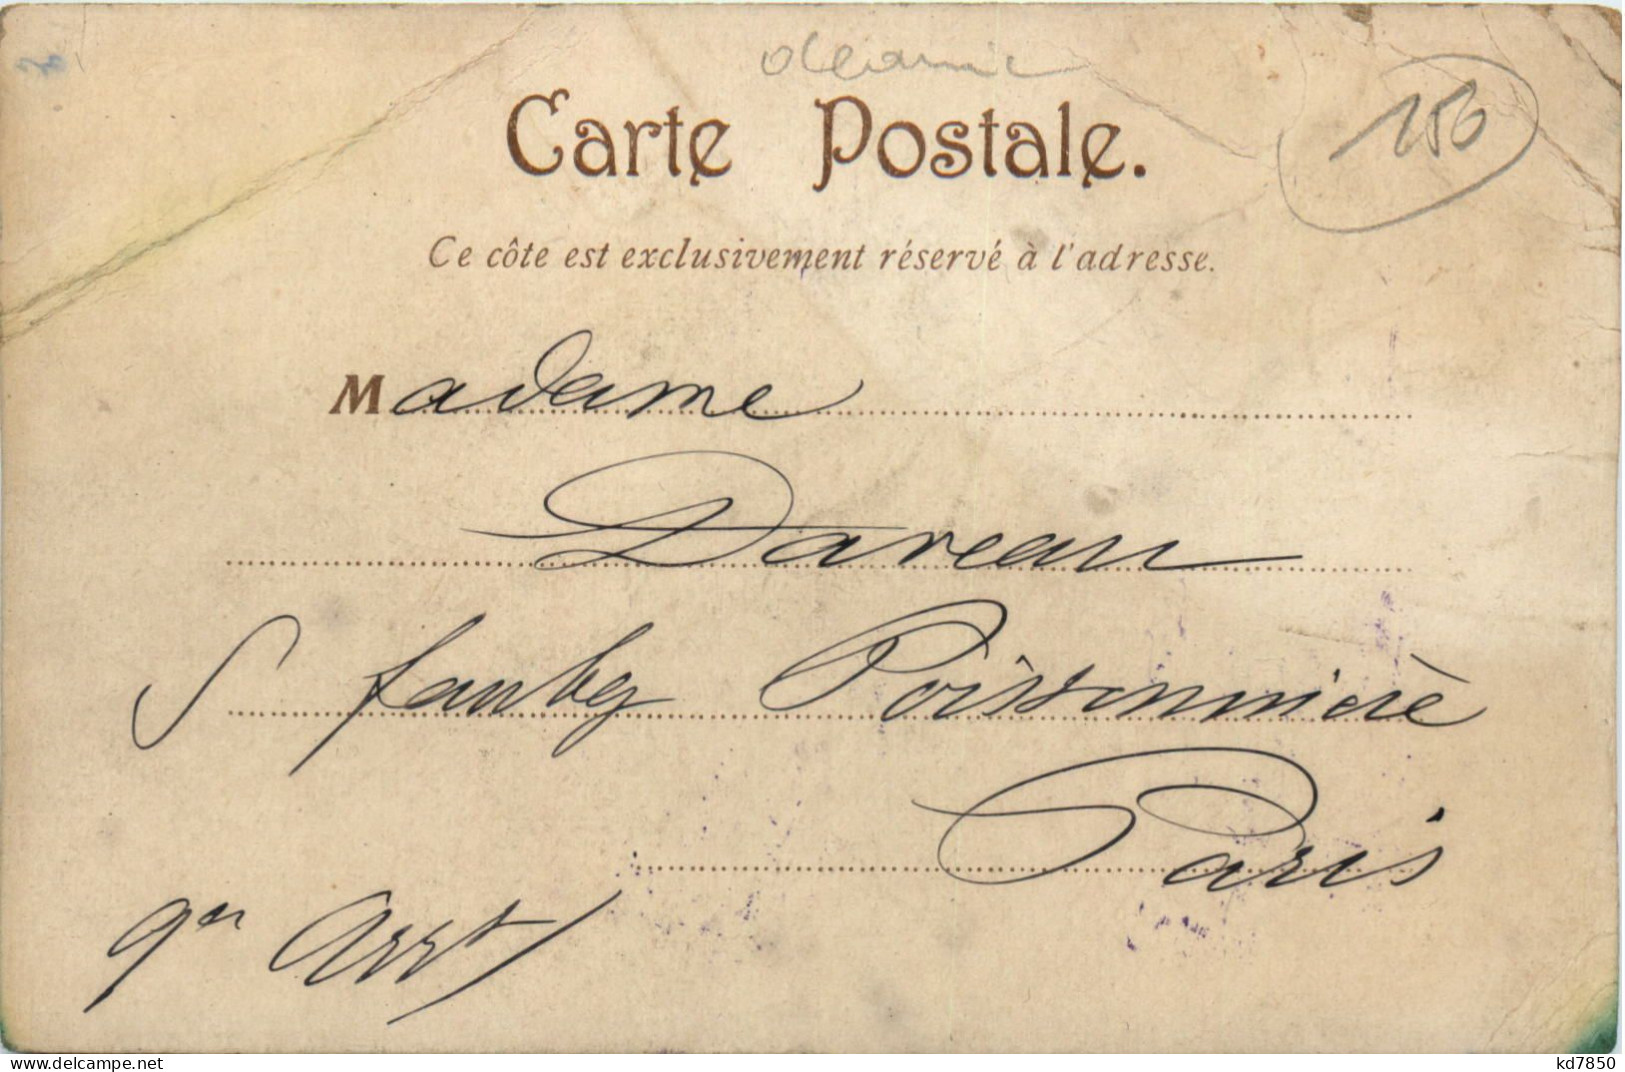 Océanie
150
Carte Postale.
Ce côte est exclusivement réservé à l'adresse.
Madame
Daveau
5 faubg Poissonnière
Paris
9em Arrt
kd7850